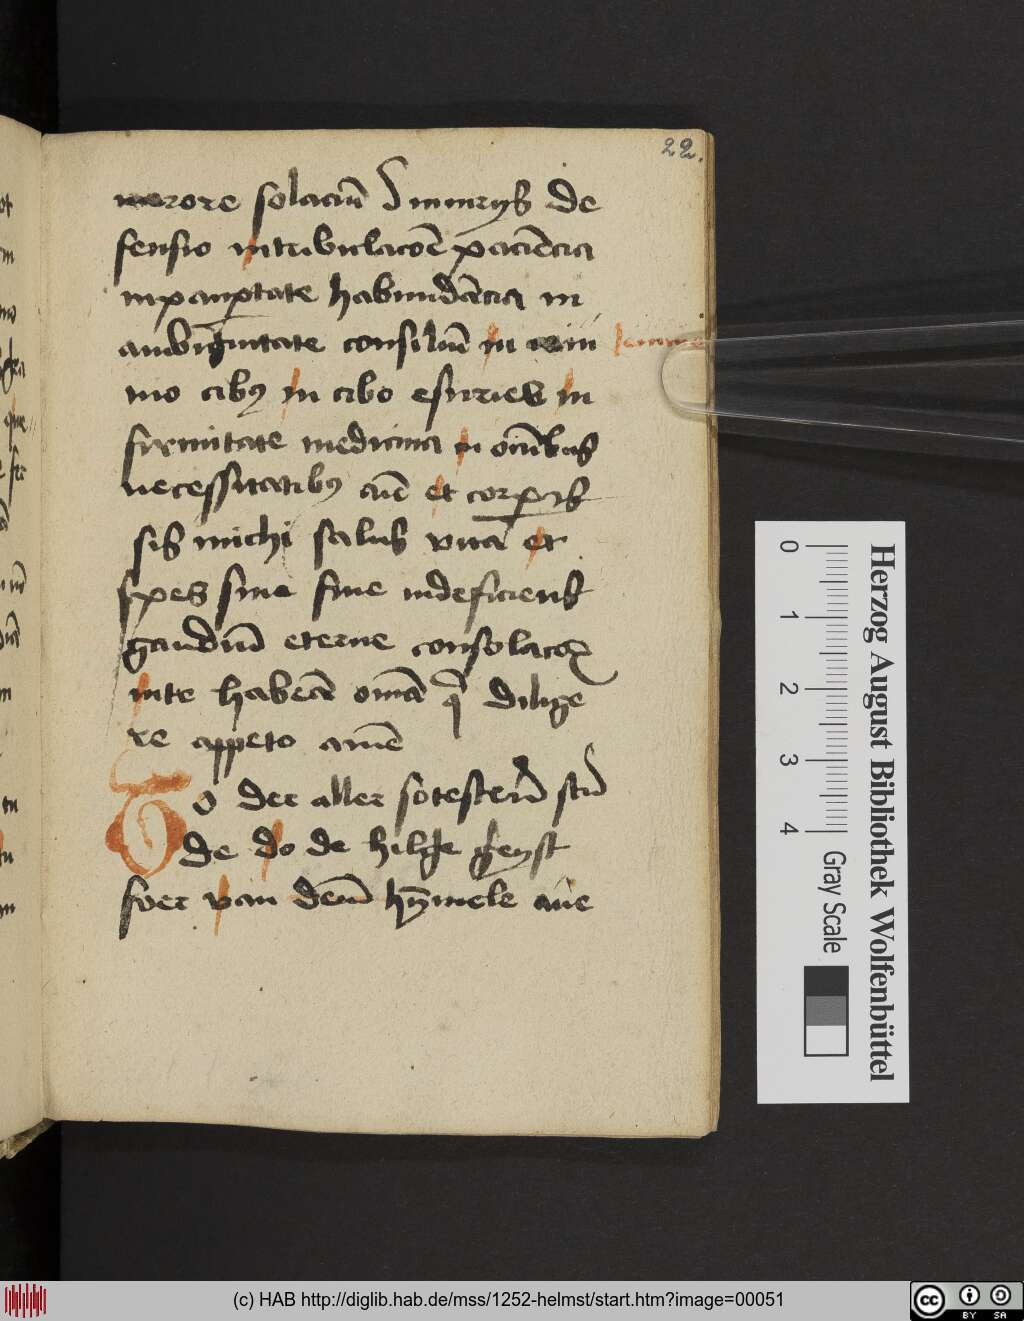 22.
merore solaciu̅ In iniurijs de
fensio in tribulacōe paciēcia
in paup̲tate habundācia in
ambiguitate consiliu̅ in ieiu ieiunio
nio cibus in cibo esuries in
firmitate medicina in om̅ibus
necessitatibus aīe et corporis
sis michi salus vita et
spes sine fine indeficiens
gaudiu̅ eterne consolacōꝫ
in te habeā om̅ia q̄ dilige
re appeto amē
To der aller sotesten̅ stu̅
de do de hilge geyst
foer van den̅ hȳmele aue
Herzog August Bibliothek Wolfenbüttel
0 1 2 3 4
Gray Scale
(c) HAB http://diglib.hab.de/mss/1252-helmst/start.htm?image=00051
cc BY SA